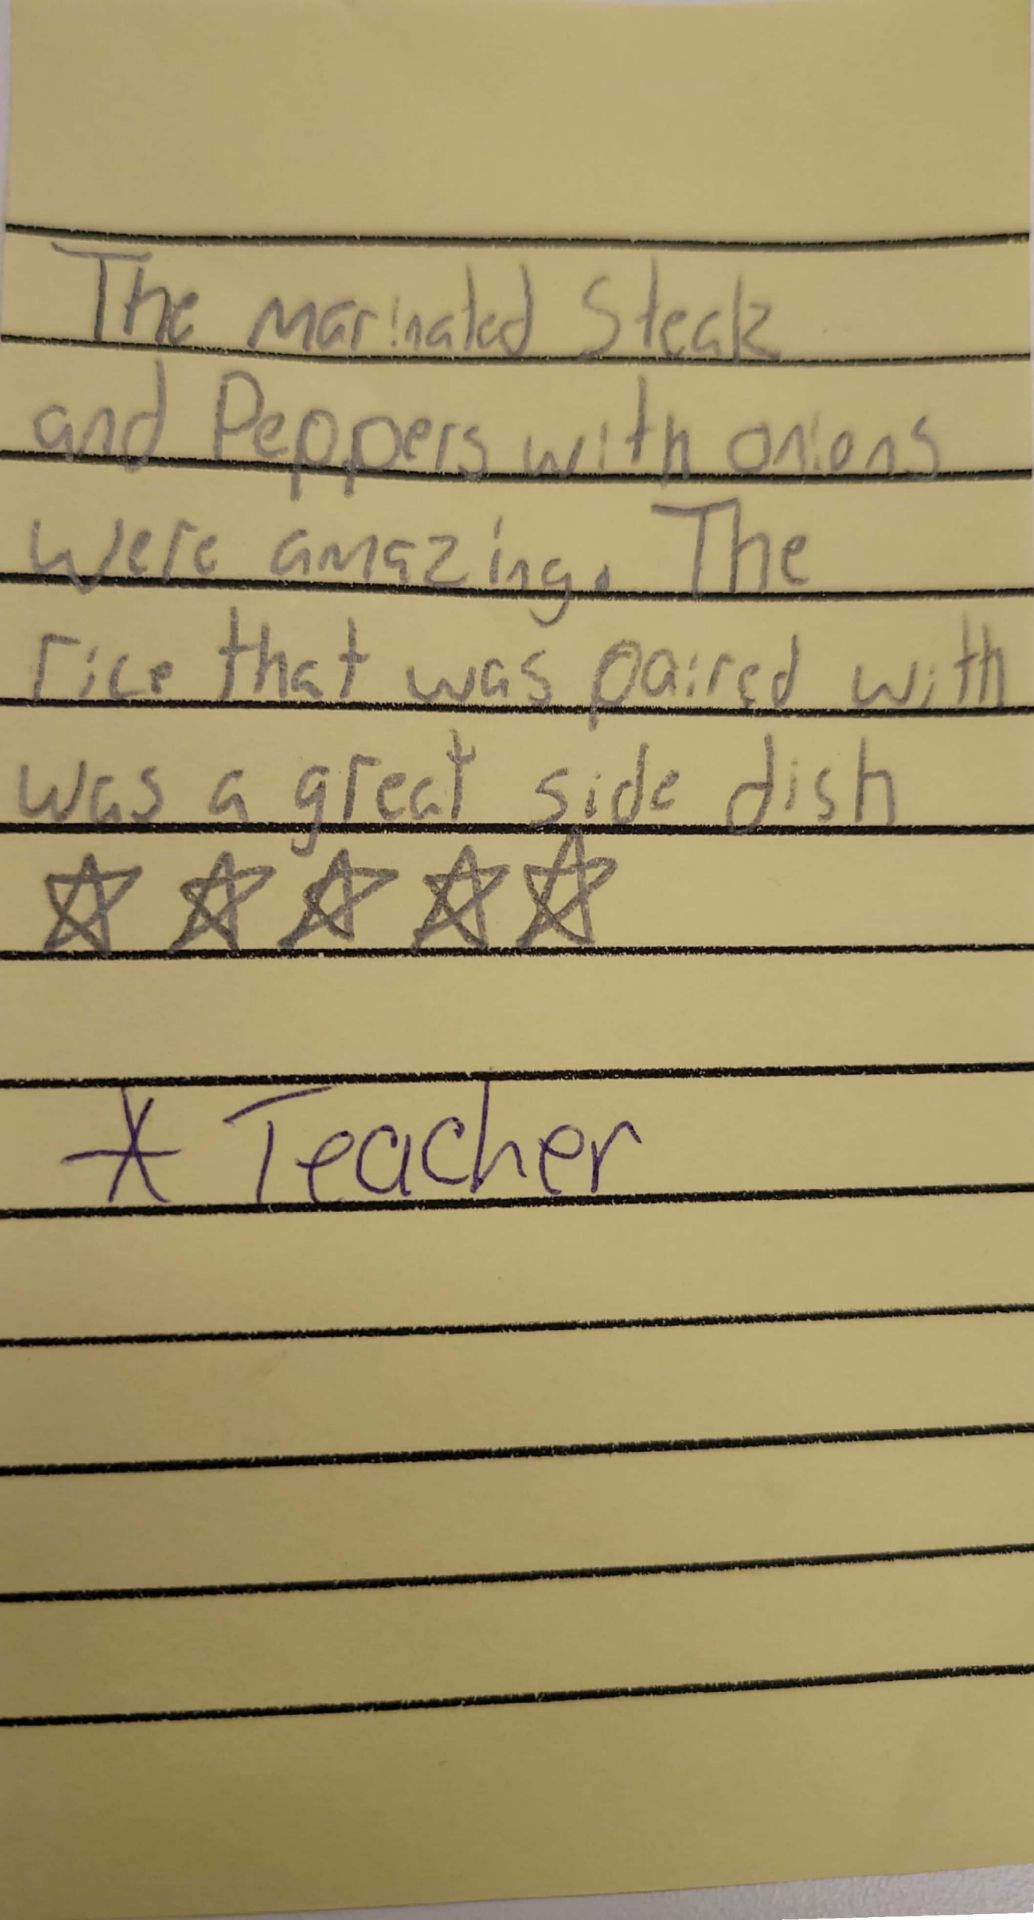 The marinated Steak
and Peppers with onions
were amazing. The
rice that was paired with
was a great side dish
☆ ☆ ☆ ☆ ☆
* Teacher